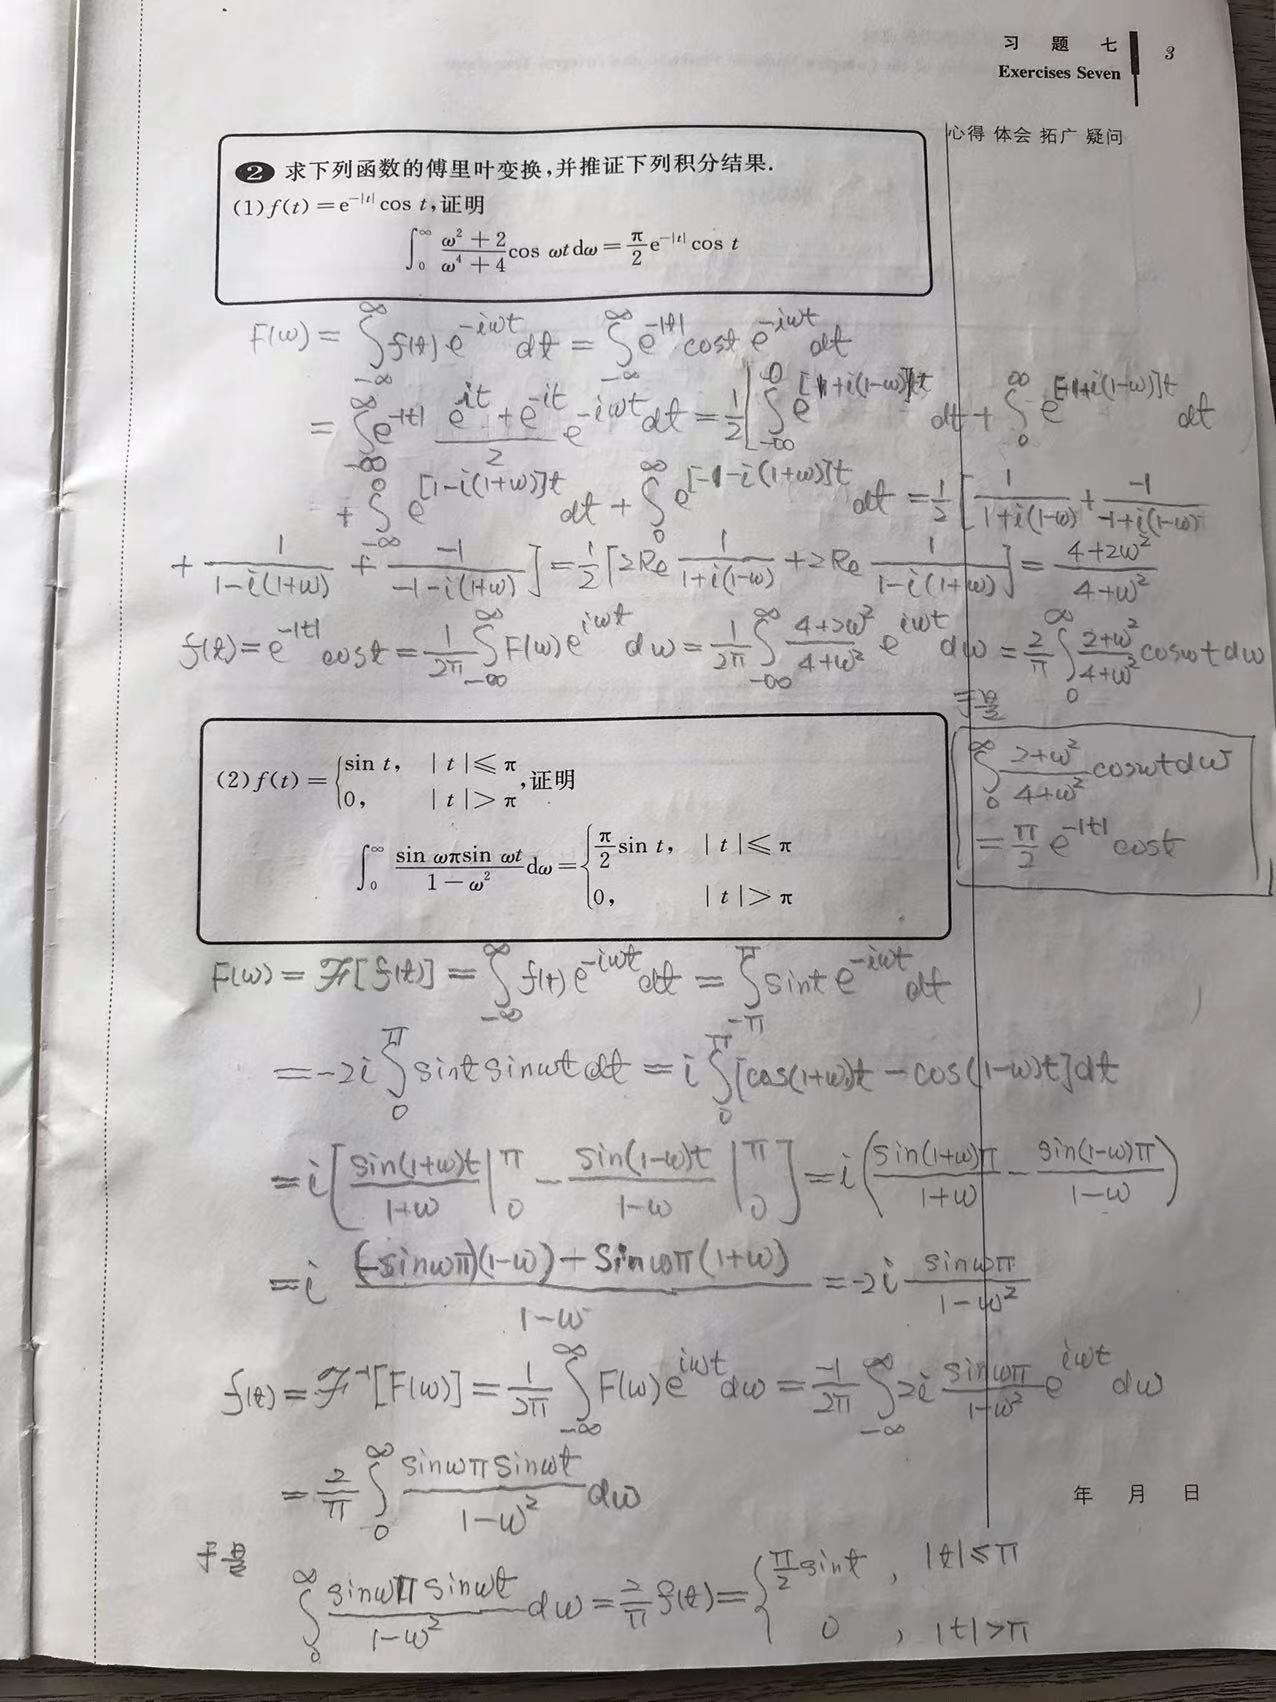 习 题 七
Exercises Seven
3
心得 体会 拓广 疑问
❷ 求下列函数的傅里叶变换,并推证下列积分结果.
(1) f(t)=e^{-|t|} cos t,证明
∫_0^∞ (ω²+2)/(ω⁴+4) cos ωt dω = π/2 e^{-|t|} cos t
F(ω) = ∫_{-∞}^{∞} f(t) e^{-iωt} dt = ∫_{-∞}^{∞} e^{-|t|} cost e^{-iωt} dt
= ∫_{-∞}^{∞} e^{-|t|} (e^{it}+e^{-it})/2 e^{-iωt} dt = 1/2 [∫_{-∞}^{0} e^{[1+i(1-ω)]t} dt + ∫_0^∞ e^{[-1+i(1-ω)]t} dt
+ ∫_{-∞}^{0} e^{[1-i(1+ω)]t} dt + ∫_0^∞ e^{[-1-i(1+ω)]t} dt = 1/2 [1/(1+i(1-ω)) + -1/(-1+i(1-ω))
+ 1/(1-i(1+ω)) + -1/(-1-i(1+ω))] = 1/2 [2Re 1/(1+i(1-ω)) + 2Re 1/(1-i(1+ω))] = (4+2ω²)/(4+ω²)
f(t) = e^{-|t|} cost = 1/2π ∫_{-∞}^{∞} F(ω) e^{iωt} dω = 1/2π ∫_{-∞}^{∞} (4+2ω²)/(4+ω²) e^{iωt} dω = 2/π ∫_0^∞ (2+ω²)/(4+ω²) cosωt dω
于是
∫_0^∞ (2+ω²)/(4+ω²) cosωt dω
= π/2 e^{-|t|} cost
(2) f(t) = { sin t, |t| ≤ π
0, |t| > π ,证明
∫_0^∞ (sin ωπ sin ωt)/(1-ω²) dω = { π/2 sin t, |t| ≤ π
0, |t| > π
F(ω) = ℱ[f(t)] = ∫_{-∞}^{∞} f(t) e^{-iωt} dt = ∫_{-π}^{π} sint e^{-iωt} dt
= -2i ∫_0^π sint sinωt dt = i ∫_0^π [cos(1+ω)t - cos(1-ω)t] dt
= i [sin(1+ω)t/(1+ω) |_0^π - sin(1-ω)t/(1-ω) |_0^π] = i (sin(1+ω)π/(1+ω) - sin(1-ω)π/(1-ω))
= i ((-sinωπ)(1-ω) + sinωπ(1+ω))/(1-ω) = -2i sinωπ/(1-ω²)
f(t) = ℱ^{-1}[F(ω)] = 1/2π ∫_{-∞}^{∞} F(ω) e^{iωt} dω = -1/2π ∫_{-∞}^{∞} 2i sinωπ/(1-ω²) e^{iωt} dω
= 2/π ∫_0^∞ (sinωπ sinωt)/(1-ω²) dω
年 月 日
于是
∫_0^∞ (sinωπ sinωt)/(1-ω²) dω = 2/π f(t) = { π/2 sint , |t| ≤ π
0 , |t| > π